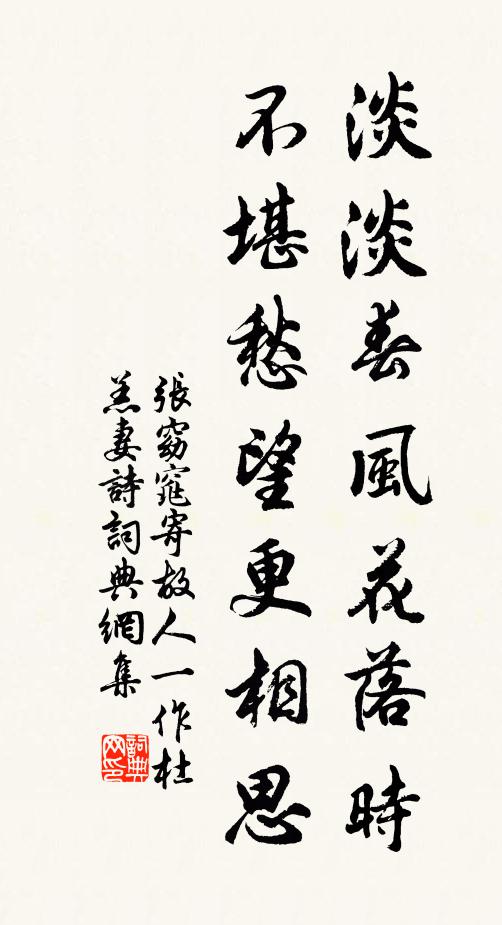 淡淡春風花落時
不堪愁望更相思
張窈窕寄故人一作杜
羔妻詩詞典網集
詞典网印